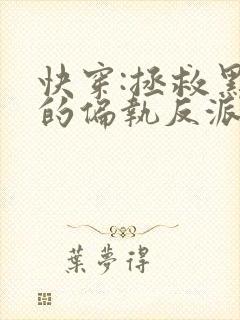 快穿:拯救黑
的偏執反派
葉夢得